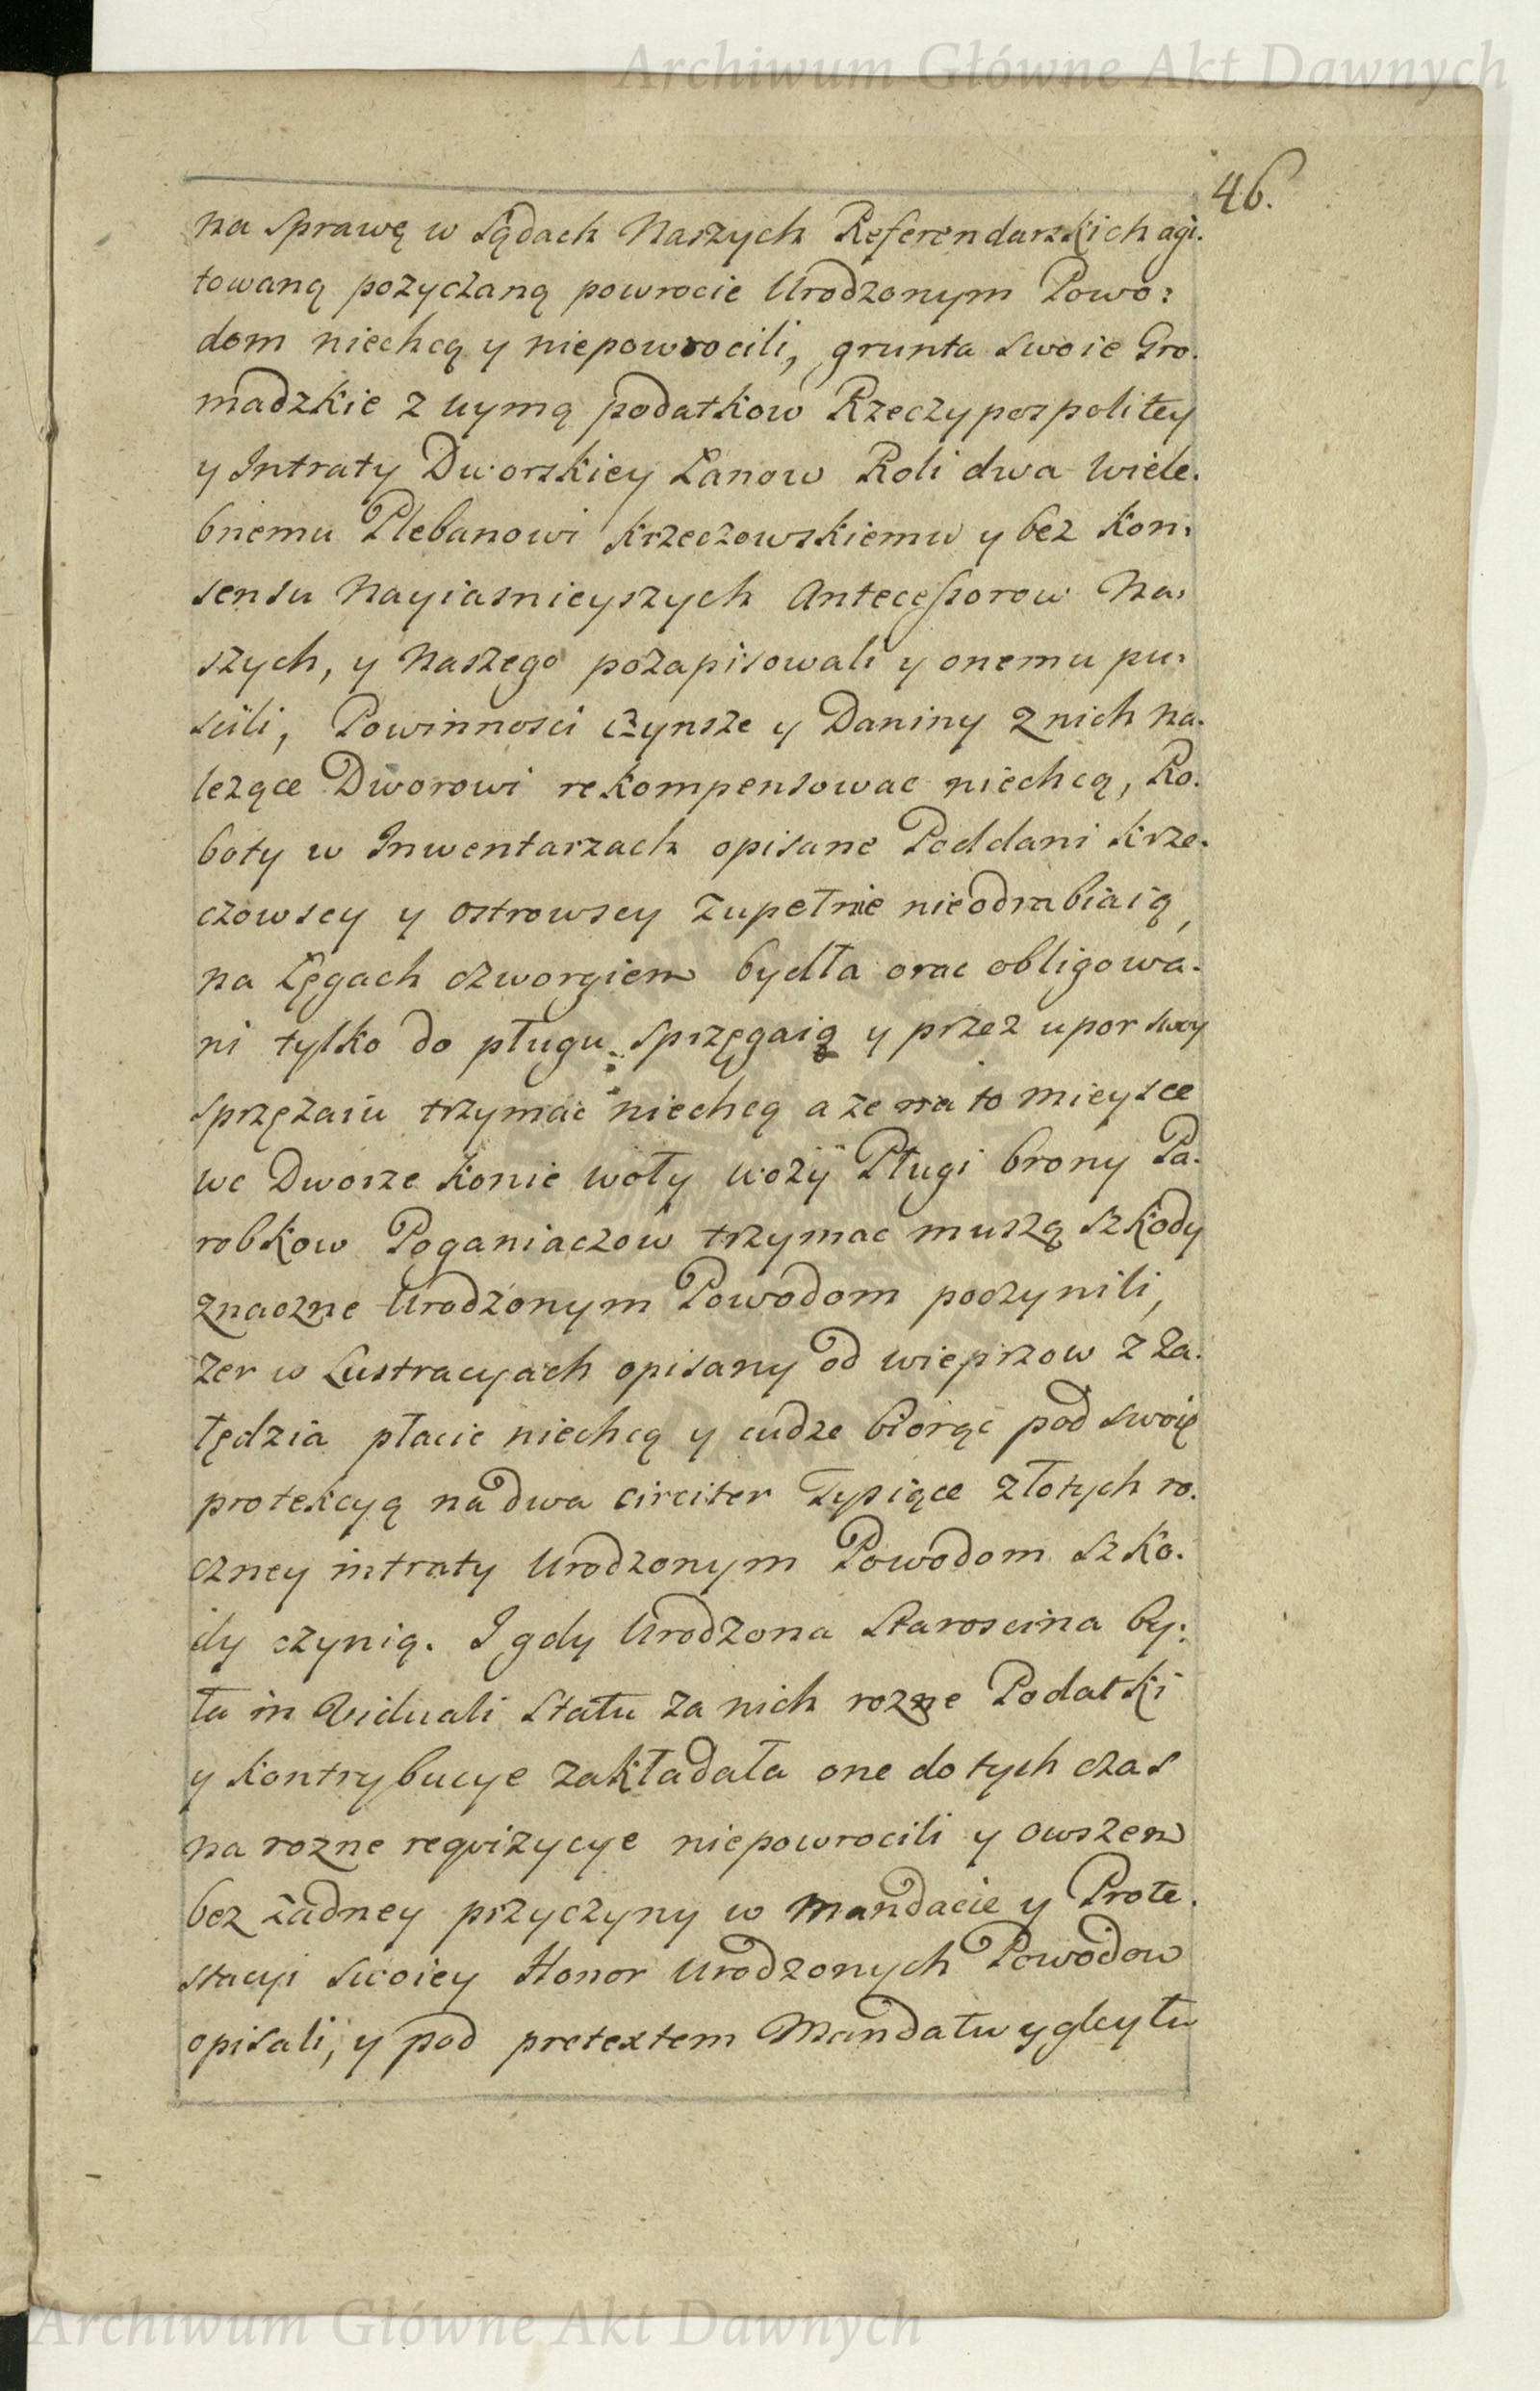 Archiwum Główne Akt Dawnych
46.
na sprawę w Sądach Naszych Referendarskich agi.
towaną pozyczaną powrocie Urodzonym Powo:
dom niechcą y niepowrocili, grunta swoie Gro.
madzkie z uymą podatkow Rzeczypospolitey
y Intraty Dworskiey Łanow Roli dwa Wiele.
bnemu Plebanowi Krzeczowskiemu y bez Kon:
sensu Nayiasnieyszych Antecessorow Na:
szych, y Naszego pozapisowali y onemu pu:
scili, Powinnosci Czynsze y Daniny z nich na.
lezące Dworowi rekompensowac niechcą, Ro.
boty w Inwentarzach opisane Poddani Krze.
czowscy y Ostrowscy zupełnie nieodrabiaią,
na Łęgach czworgiem bydła orac obligowa.
ni tylko do pługu sprzęgaią y przez upor swoy
sprzężaiu trzymac niechcą a ze na to mieysce
we Dworze konie woły wozy Pługi brony Pa.
robkow Poganiaczow trzymac muszą szkody
znaczne Urodzonym Powodom poczynili,
Zer w Lustracyach opisany od wieprzow z Za.
łędzia płacic niechcą y cudze biorąc pod swoię
protekcyą na dwa circiter Tysiące złotych ro.
czney intraty Urodzonym Powodom szko.
dy czynią. I gdy Urodzona Starościna by:
ła in Viduali Statu za nich rozne Podatki
y kontrybucye zakładała one do tych czas
na rozne reqvizycye niepowrocili y owszem
bez żadney przyczyny w Mandacie y Prote.
stacyi swoiey Honor Urodzonych Powodow
opisali, y pod pretextem Mandatu y gleytu
Archiwum Główne Akt Dawnych